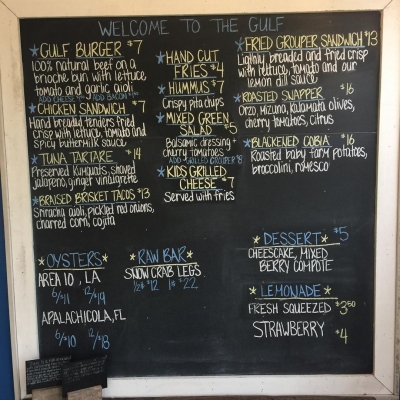 WELCOME TO THE GULF
GULF BURGER $7
100% natural beef on a
brioche bun with lettuce
tomato and garlic aioli
ADD CHEESE ADD BACON
CHICKEN SANDWICH $7
Hand breaded tenders fried
crisp with lettuce, tomato and
spicy buttermilk sauce
TUNA TARTARE $14
Preserved Kumquats, shaved
jalapeño, ginger vinaigrette
BRAISED BRISKET TACOS $13
Sriracha aioli, pickled red onions,
charred corn, cojita
HAND CUT
FRIES $4
HUMMUS $7
Crispy pita chips
MIXED GREEN
SALAD $5
Balsamic dressing +
cherry tomatoes
ADD GRILLED GROUPER $8
KIDS GRILLED
CHEESE $7
Served with fries
FRIED GROUPER SANDWICH $13
Lightly breaded and fried crisp
with lettuce, tomato and our
lemon dill sauce
ROASTED SNAPPER $16
Orzo, mizuna, kalamata olives,
cherry tomatoes, citrus
BLACKENED COBIA $16
Roasted baby farm potatoes,
broccolini, romesco
OYSTERS
AREA 10, LA
6/$11 12/$19
APALACHICOLA, FL
6/$10 12/$18
RAW BAR
SNOW CRAB LEGS
1/2# $12 1# $22
DESSERT $5
CHEESCAKE, MIXED
BERRY COMPOTE
LEMONADE
FRESH SQUEEZED $3.50
STRAWBERRY $4